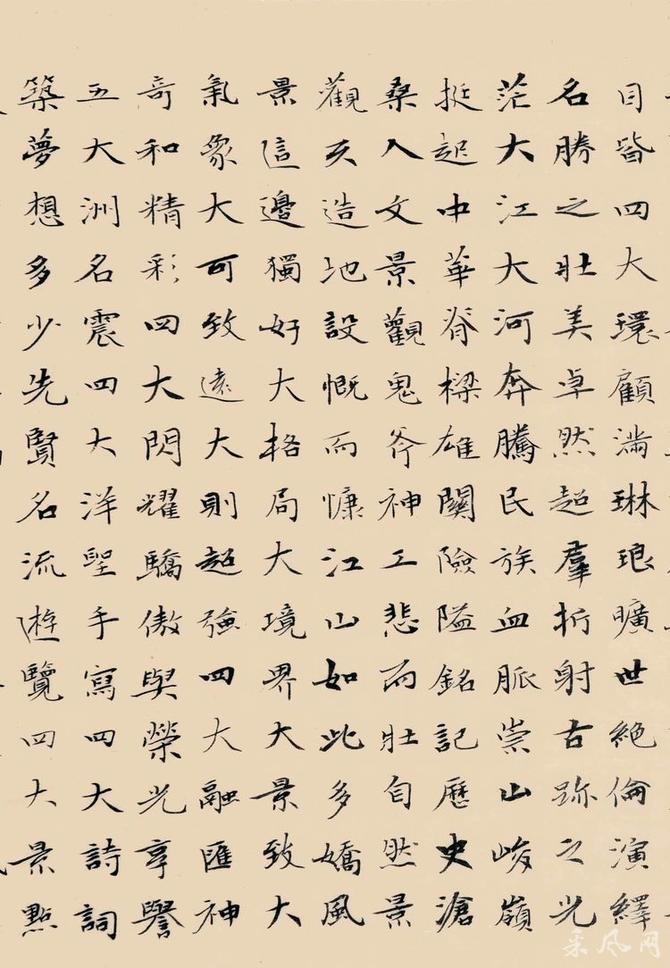 目皆四大環顧滿琳琅曠世絕倫演繹
名勝之壯美卓然超羣折射古跡之光
茫大江大河奔騰民族血脈崇山峻嶺
挺起中華脊樑雄關險隘銘記歷史滄
桑人文景觀鬼斧神工悲而壯自然景
觀天造地設慨而慷江山如此多嬌風
景這邊獨好大格局大境界大景致大
氣象大可致遠大則超強四大融匯神
奇和精彩四大閃耀驕傲與榮光享譽
五大洲名震四大洋聖手寫四大詩詞
築夢想多少先賢名流遊覽四大景點
采风网